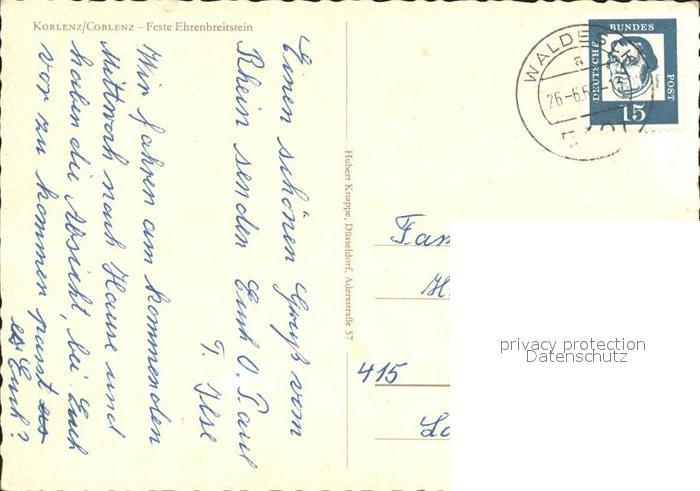 KOBLENZ/COBLENZ – Feste Ehrenbreitstein
Einen schönen Gruß vom
Rhein senden Euch O. Paul
T. Ilse
Wir fahren am kommenden
Mittwoch nach Hause und
haben die Absicht, bei Euch
vor zu kommen passt es
es Euch?
Hubert Knappe, Düsseldorf, Adersstraße 57
WALDES
a
26.-6.6
DEUTSCHE
BUNDES
POST
15
Fam
H
415
privacy protection
Datenschutz